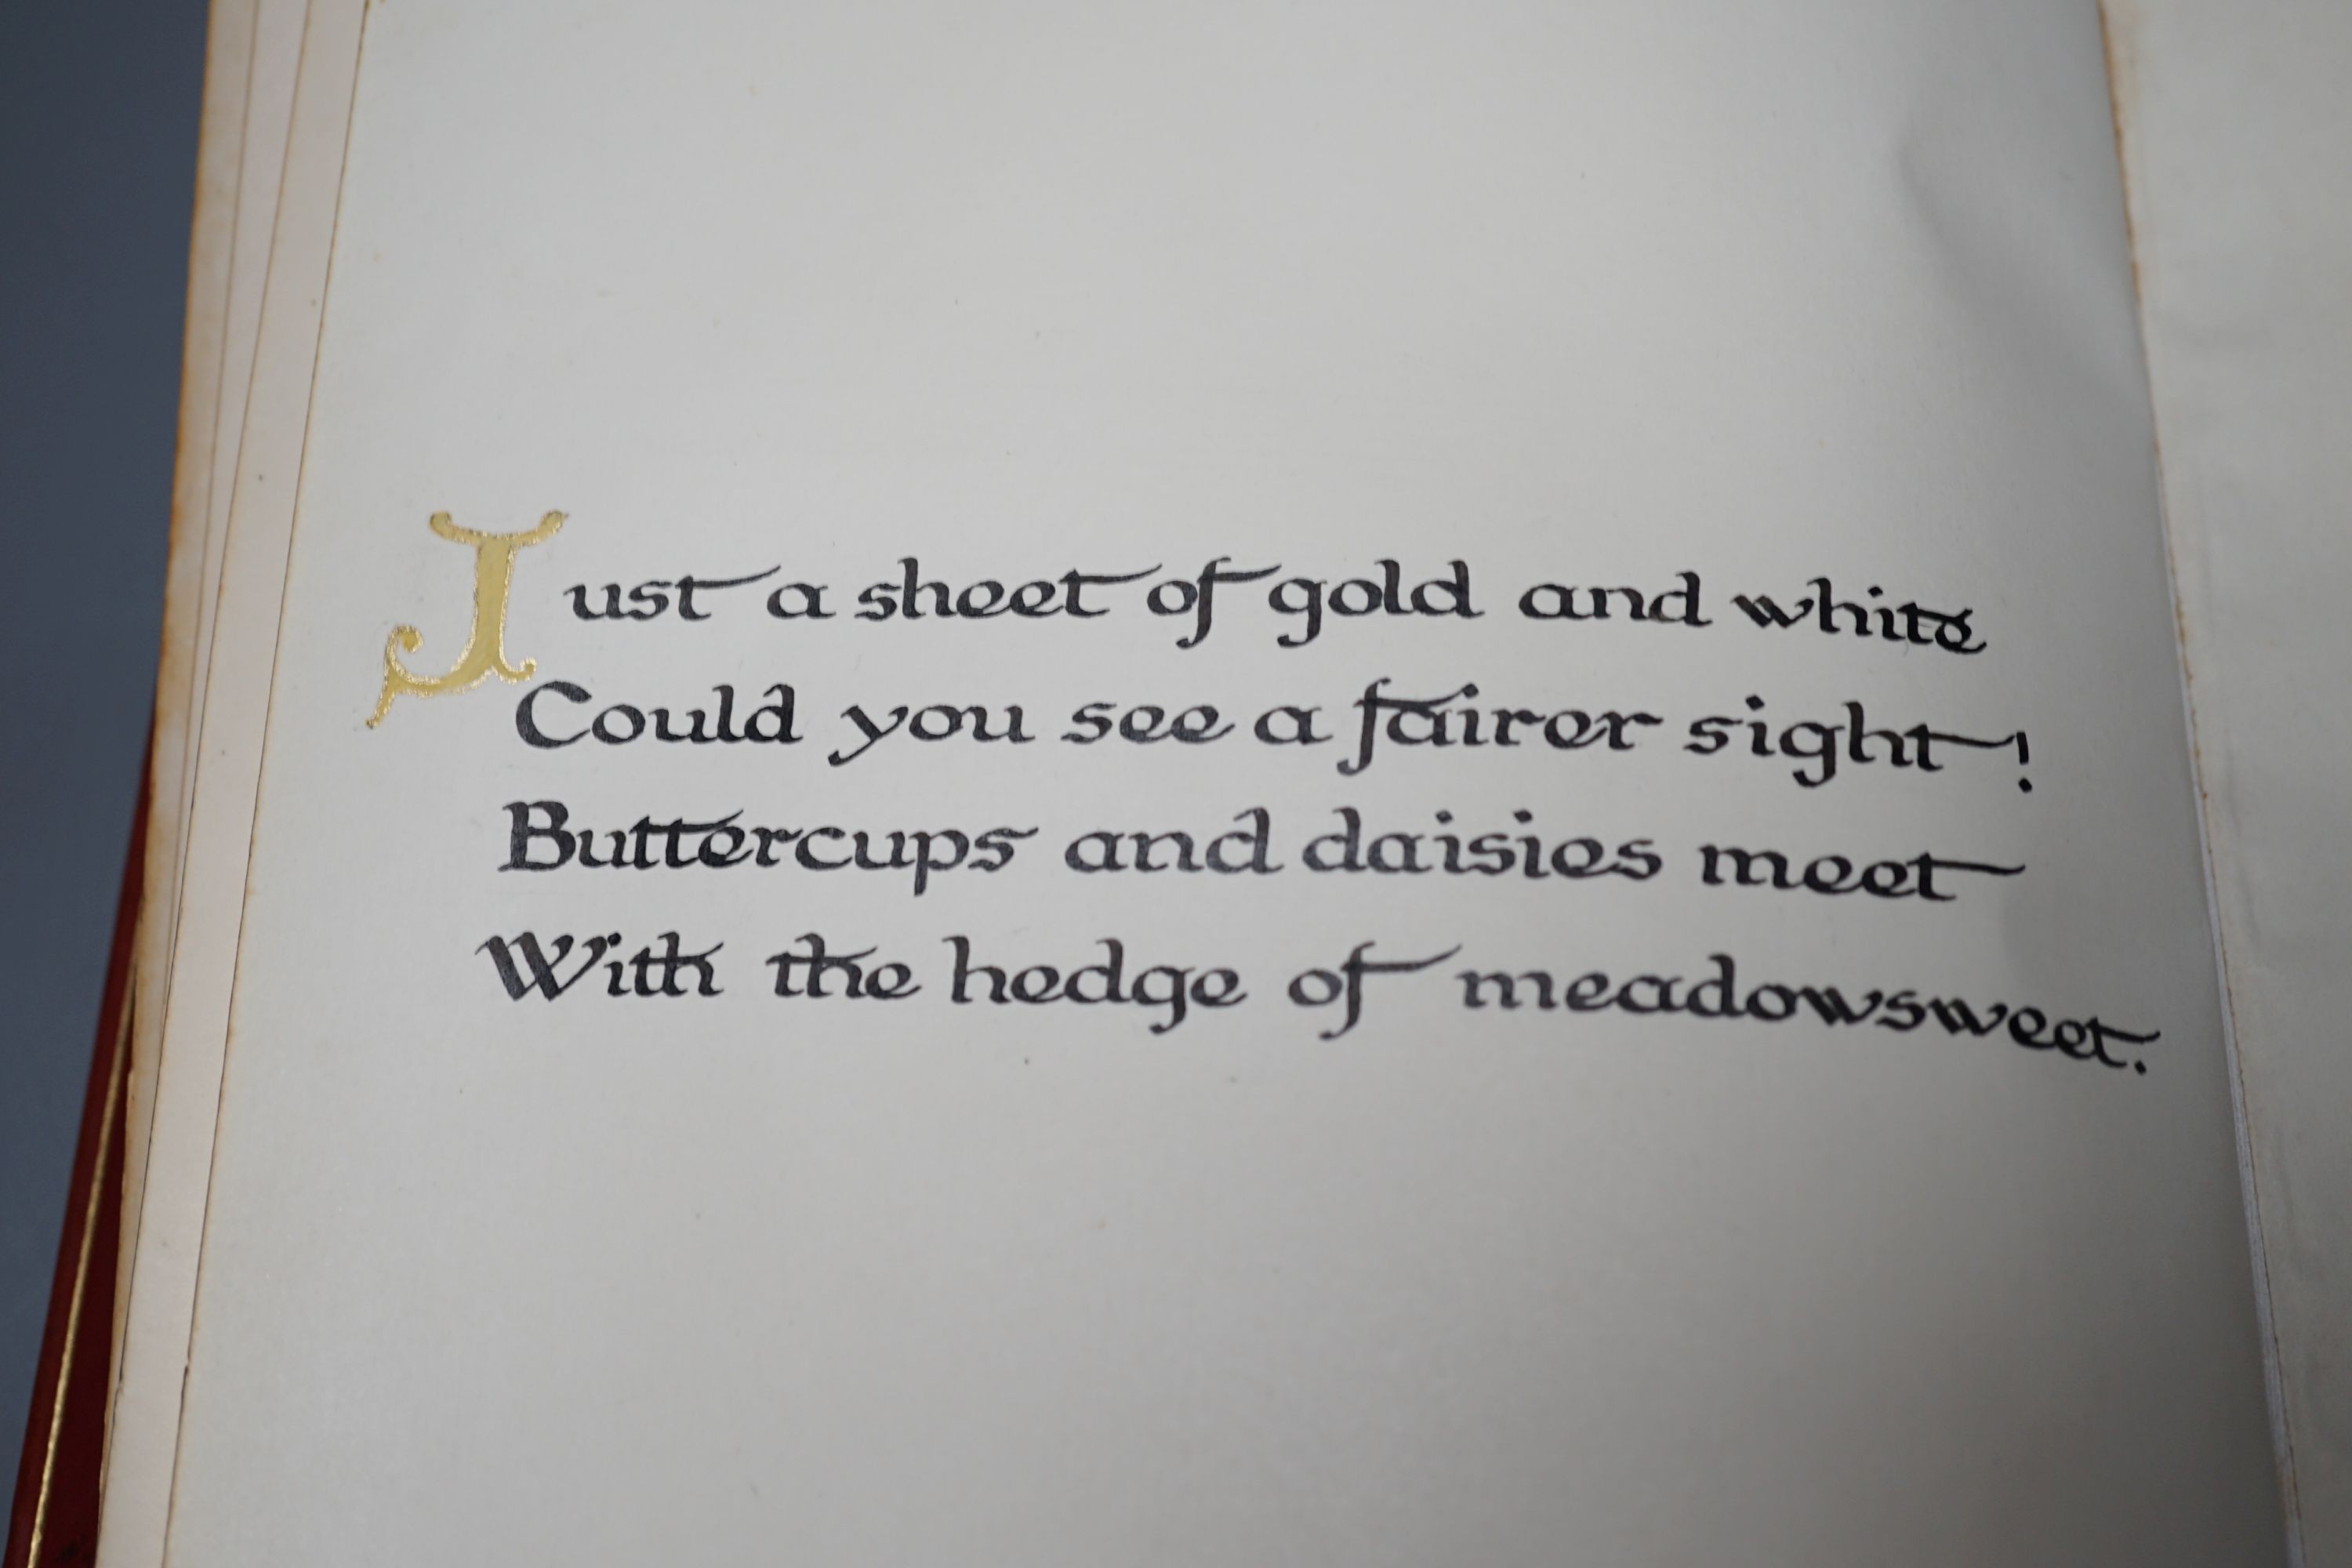 Just a sheet of gold and white
Could you see a fairer sight!
Buttercups and daisies meet
With the hedge of meadowsweet.